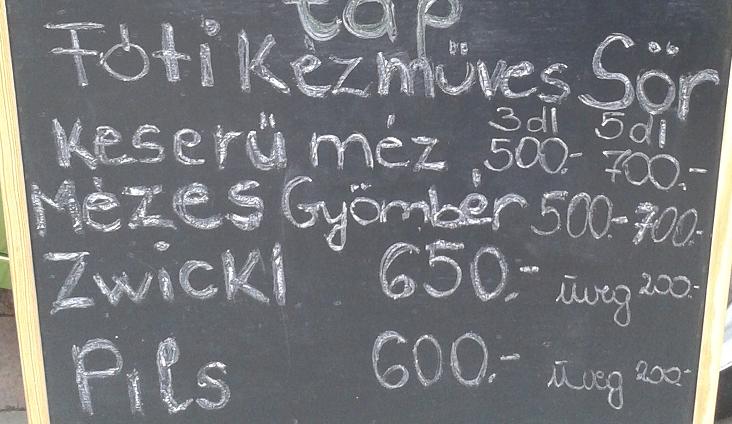 táp
Fóti Kézműves Sör
3dl 5dl
Keserű méz 500.- 700.-
Mézes Gyömbér 500.- 700.-
Zwickl 650.- üveg 200.-
Pils 600.- üveg 200.-